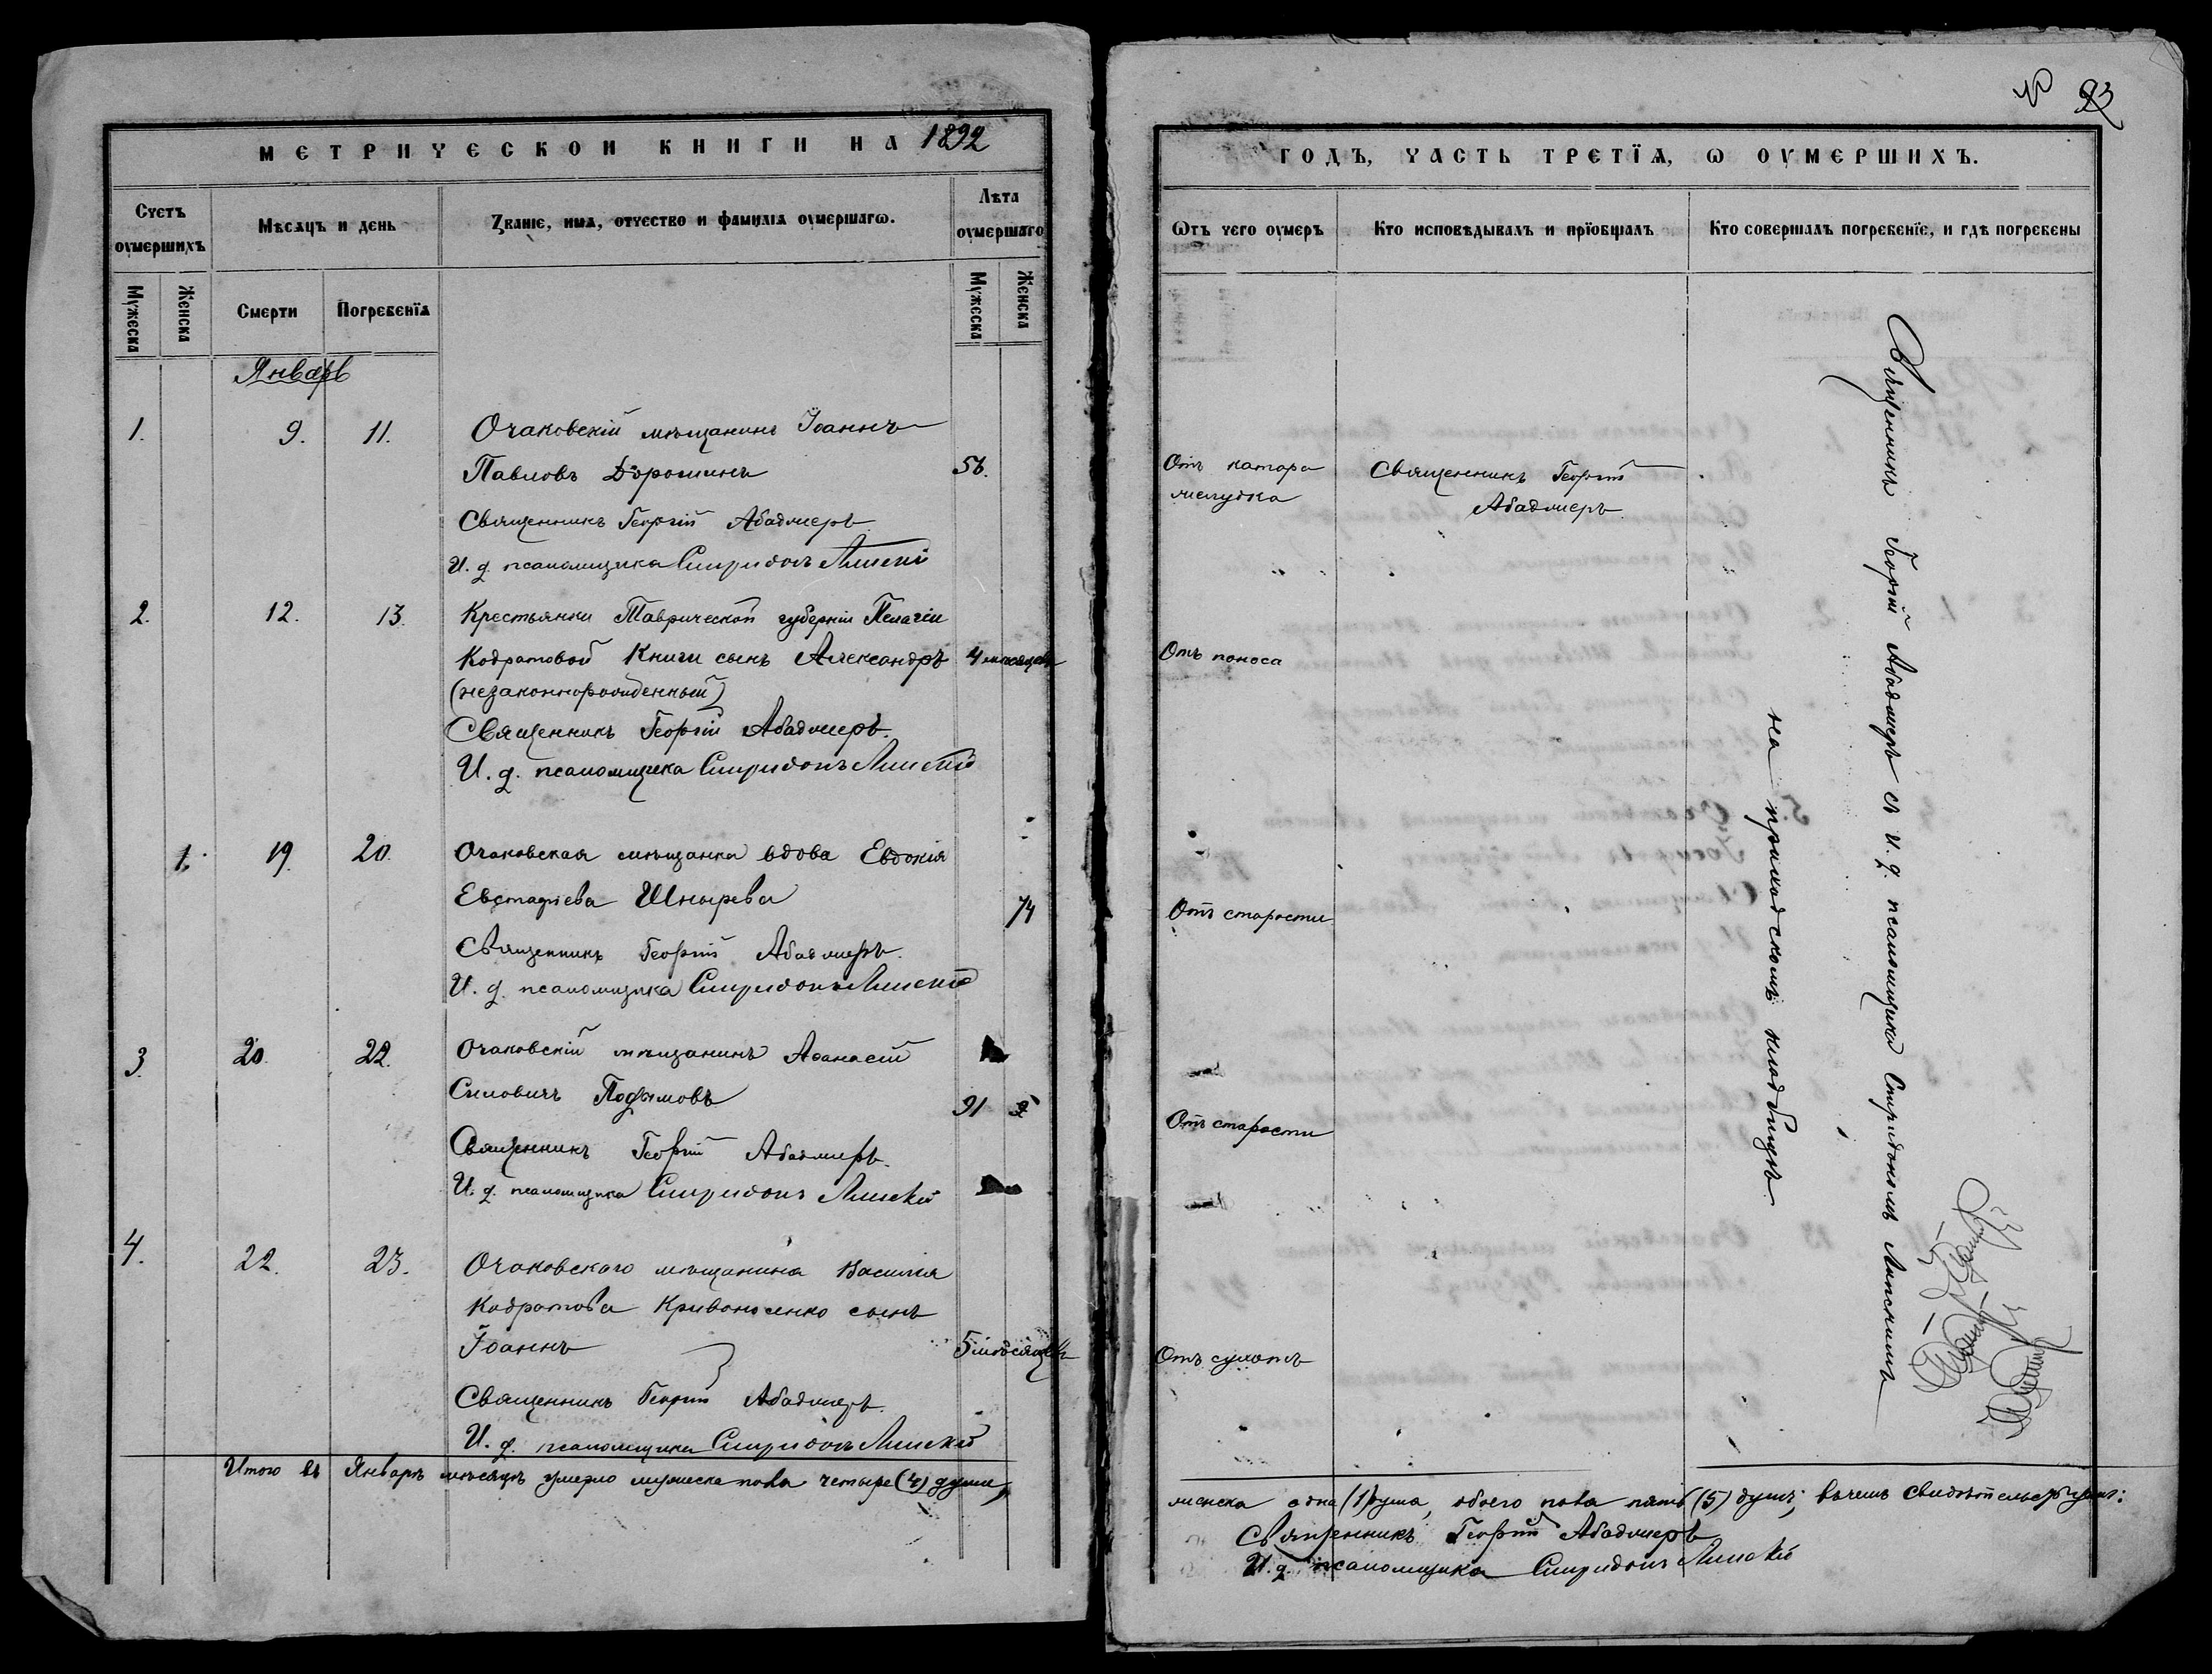 МЕТРИЧЕСКОИ КНИГИ НА 1892
Счетъ оумершихъ
Мѣсяцъ и день
Званіе, имя, отчество и фамилія оумершагѡ.
Лѣта оумершаго
Мужеска
Женска
Смерти
Погребенїя
Мужеска
Женска
Январь
1. 9. 11. Очаковскій мѣщанинъ Іоаннъ
Павловъ Дорошинъ 56.
Священникъ Георгій Абаджеръ
И. д. псаломщика Спиридонъ Липскій
2. 12. 13. Крестьянки Таврической губерніи Пелагіи
Кодратовой Книги сынъ Александръ 4 мѣсяцевъ
(незаконнорожденный)
Священникъ Георгій Абаджеръ.
И. д. псаломщика Спиридонъ Липскій
1. 19. 20. Очаковская мѣщанка вдова Евдокія
Евстафіева Шнырева 74
Священникъ Георгій Абаджеръ.
И. д. псаломщика Спиридонъ Липскій
3. 20. 22. Очаковскій мѣщанинъ Аѳанасій
Силовичъ 91
Священникъ Георгій Абаджеръ.
И. д. псаломщика Спиридонъ Липскій
4. 22. 23. Очаковскаго мѣщанина Василія
Кодратова Кривоносенко сынъ
Іоаннъ 5 мѣсяцевъ
Священникъ Георгій Абаджеръ.
И. д. псаломщика Спиридонъ Липскій
Итого въ Январѣ мѣсяцѣ умерло мужеска пола четыре (4) души,
93
ГОДЪ, ЧАСТЬ ТРЕТЇЯ, Ѡ ОУМЕРШИХЪ.
Ѿтъ чего оумеръ
Кто исповѣдывалъ и прїобщалъ
Кто совершалъ погребенїе, и гдѣ погребены
Отъ катара
желудка
Священникъ Георгій
Абаджеръ
Отъ поноса
Отъ старости
Отъ старости
Отъ сухотъ
Священникъ Георгій Абаджеръ съ И. д. псаломщика Спиридономъ Липскимъ
на приходскомъ кладбищѣ.
женска одна (1) душа, обоего пола пять (5) душъ; въ чемъ свидѣтельствуютъ:
Священникъ Георгій Абаджеръ
И. д. псаломщика Спиридонъ Липскій